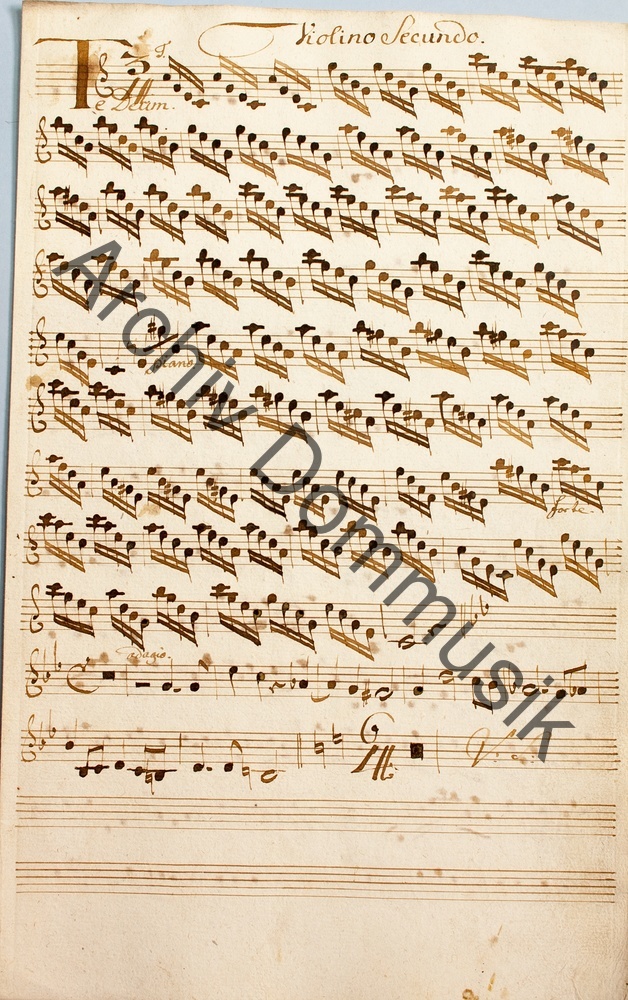 Violino Secundo.
T.
Te Deum.
piano
forte.
adagio.
Archiv Dommusik